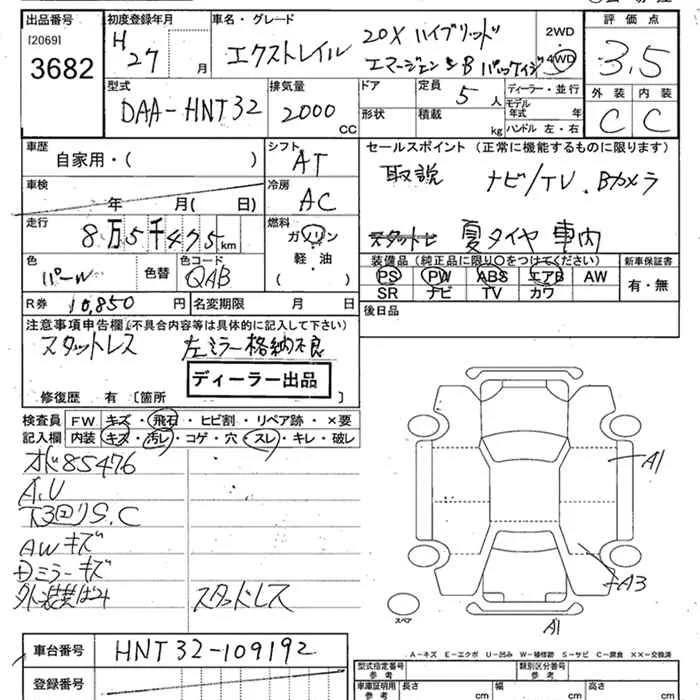 出品番号 初度登録年月 車名・グレード 評価点
[2069] H 27 月 エクストレイル 20X ハイブリッド 2WD
3682 エマージェンシーB パッケイジ 4WD 3.5
型式 排気量 ドア 定員 ディーラー・並行 外装 内装
DAA-HNT32 2000 CC 5 人 モデル年式 年 C C
形状 積載 kg ハンドル 左・右
車歴 シフト セールスポイント(正常に機能するものに限ります)
自家用・( ) AT 取説 ナビ/TV. Bカメラ
車検 冷房
年 月( 日) AC
走行 燃料 スタットレ 夏タイヤ 車内
8万5千475km ガソリン
色 色替 色コード 軽・油 装備品(純正品に限り○をつけてください) 新車保証書
パール QAB ( ) PS PW ABS エアB AW 有・無
SR ナビ TV カワ
R券 10,850 円 名変期限 月 日 後日品
注意事項申告欄(不具合内容等は具体的に記入して下さい)
スタットレス 左ミラー格納不良
ディーラー出品
修復歴 有 〔箇所 〕
検査員 FW キズ・飛石・ヒビ割・リペア跡・×要
記入欄 内装 キズ・汚レ・コゲ・穴・スレ・キレ・破レ
オド85476
A.U
下回りS.C
AWキズ
ミラーキズ
スタッドレス
A1
A3
A1
スペア
A-キズ E-エクボ U-凹み W-補修跡 S-サビ C-腐食 XX-交換済
車台番号 HNT32-109192
型式指定番号 参考 類別区分番号 参考
登録番号 車庫証明用 参考 長さ cm 幅 cm 高さ cm